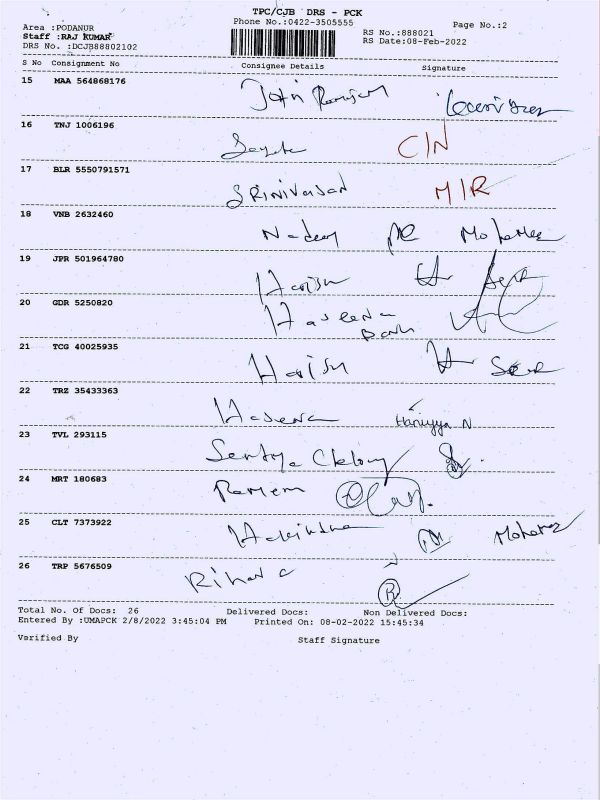 TPC/CJB DRS - PCK
Phone No.:0422-3505555
Page No.:2
Area :PODANUR
Staff :RAJ KUMAR
DRS No. :DCJB88802102
RS No.:888021
RS Date:08-Feb-2022
S No Consignment No Consignee Details Signature
15 MAA 564868176 John
16 TNJ 1006196 C/N
17 BLR 5550791571 SRINIVASAN M/R
18 VNB 2632460 Nadeem
19 JPR 501964780 Harish
20 GDR 5250820 Haseena
Banu
21 TCG 40025935 Harish
22 TRZ 35433363 Haseena Haniyya N
23 TVL 293115
24 MRT 180683
25 CLT 7373922
26 TRP 5676509 Rihana
Total No. Of Docs: 26 Delivered Docs: Non Delivered Docs:
Entered By :UMAPCK 2/8/2022 3:45:04 PM Printed On: 08-02-2022 15:45:34
Verified By Staff Signature